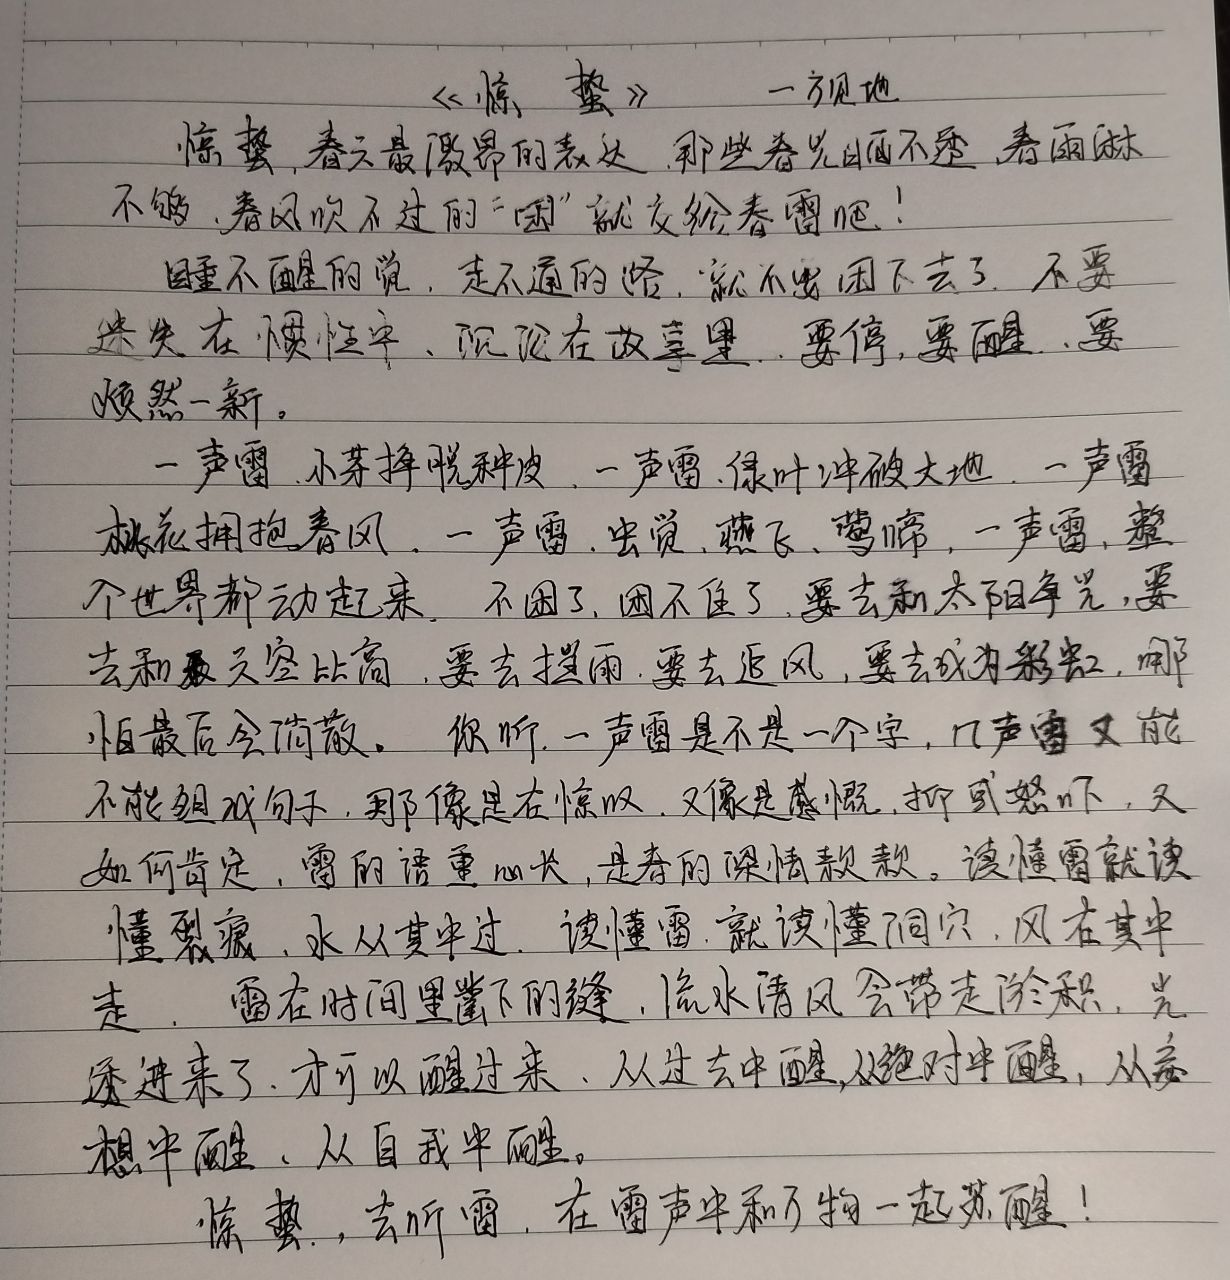 《惊蛰》 一方见地
惊蛰，春天最激昂的表达，那些春光晒不透，春雨淋
不够，春风吹不过的“困”就交给春雷吧！
睡不醒的觉，走不通的路，就不要困下去了，不要
迷失在惯性中、沉沦在故事里，要停，要醒，要
焕然一新。
一声雷，小芽挣脱种皮，一声雷，绿叶冲破大地，一声雷
桃花拥抱春风，一声雷，虫觉、燕飞、莺啼，一声雷，整
个世界都动起来，不困了，困不住了，要去和太阳争光，要
去和天空比高，要去挡雨，要去追风，要去成为彩虹，哪
怕最后会消散。你听，一声雷是不是一个字，几声雷又能
不能组成句子，那像是在惊叹，又像是感慨，抑或怒吓，又
如何肯定，雷的语重心长，是春的深情款款。读懂雷就读
懂裂痕，水从其中过，读懂雷，就读懂洞穴，风在其中
走，雷在时间里凿下的缝，流水清风会带走淤积，光
透进来了，才可以醒过来，从过去中醒，从绝对中醒，从妄
想中醒、从自我中醒。
惊蛰，去听雷，在雷声中和万物一起苏醒！